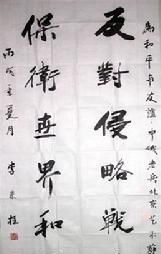 為和平
友誼中俄老兵北京
反對侵略戰
保衛世界和
丙戌夏月
李